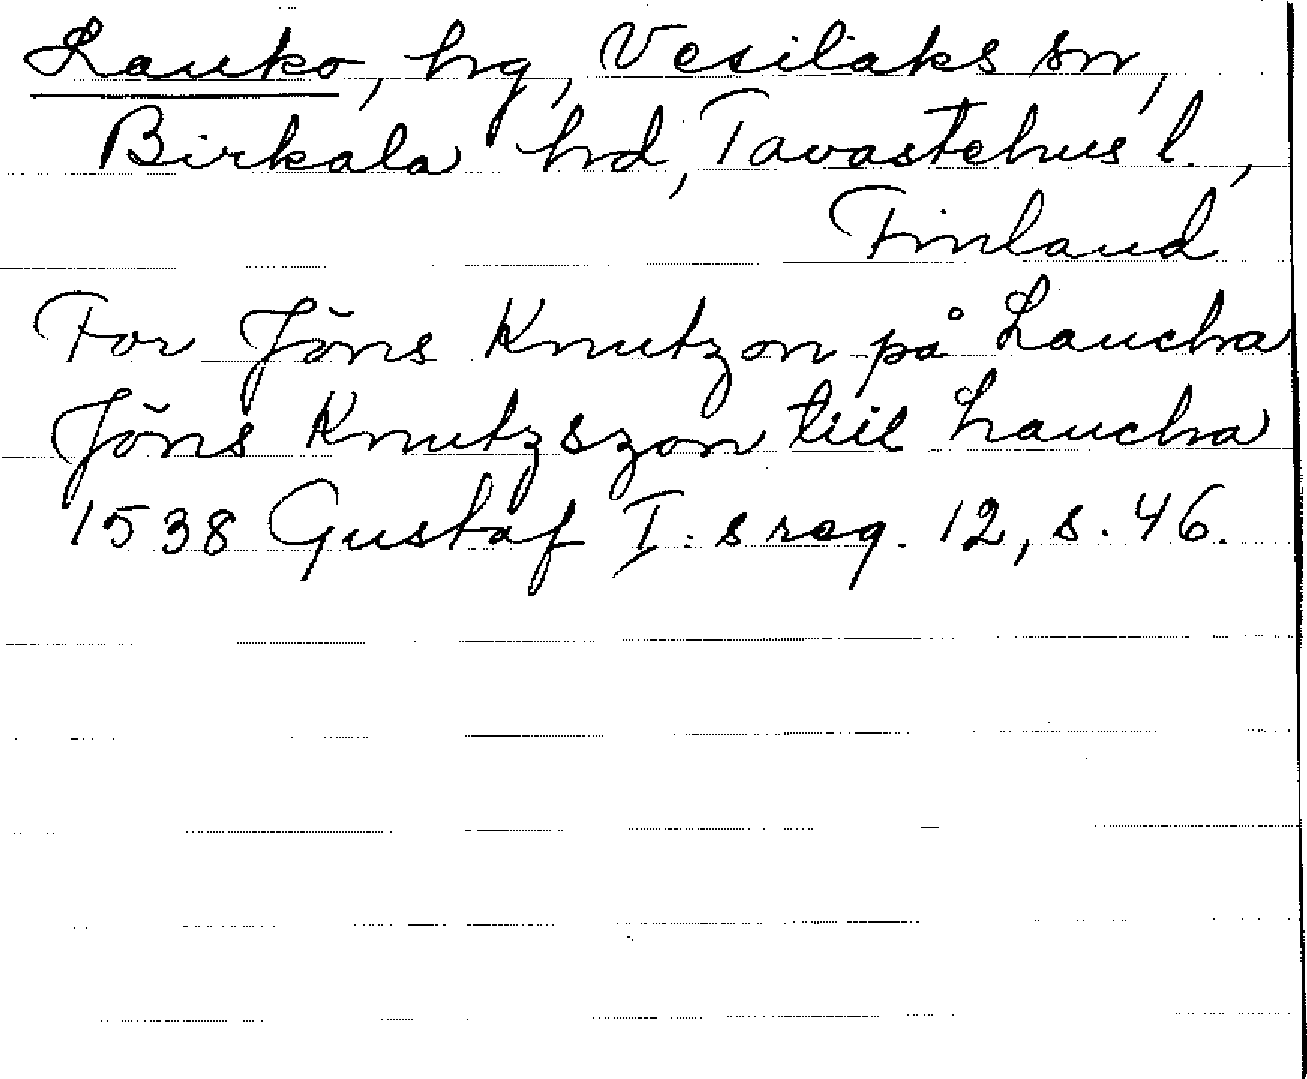 Lauko, hg, Vesilaks sn,
Birkala hd, Tavastehus l.,
Finland
For Jöns Knutzon på Laucha
Jöns Knutzszon tiil Laucha
1538 Gustaf I:s reg. 12, s. 46.